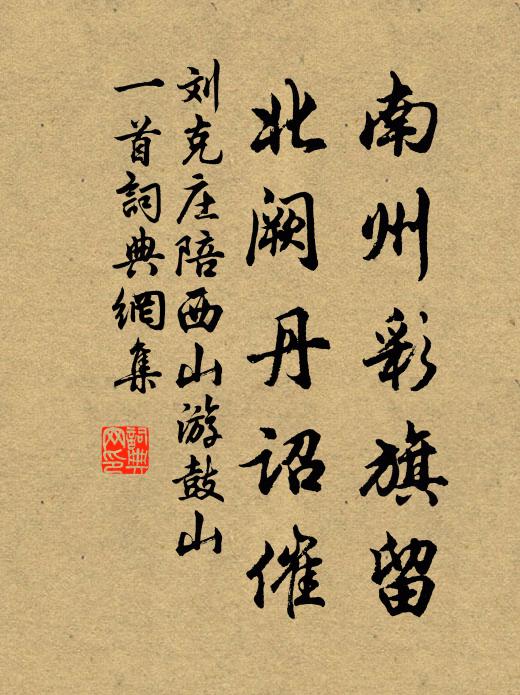 南州彩旗留
北阙丹诏催
刘克庄陪西山游鼓山
一首詞典網集
詞典網印